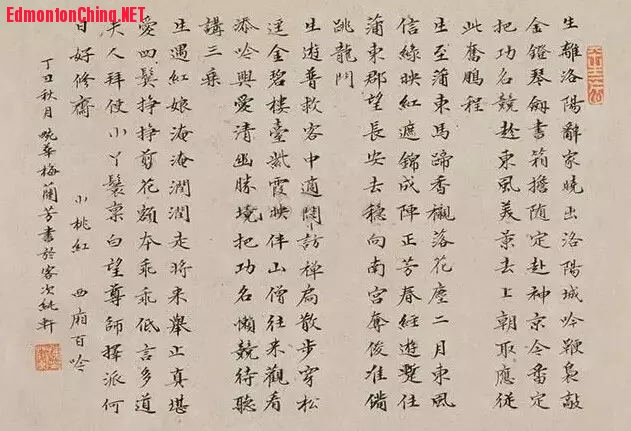 EdmontonChina.NET
生離洛陽辭家曉出洛陽城吟鞭裊敲
金鐙琴劍書箱擔随定赴神京今番定
把功名競趂東風美景去上朝取應従
此奮鵬程
生至蒲東馬蹄香襯落花塵二月東風
信綠映紅遮錦成陣正芳春經遊蹔住
蒲東郡望長安去穩向南宮奪俊准備
跳龍門
生遊普救客中適悶訪禅扃散步穿松
逕金碧樓臺紫霞映伴山僧往来觀看
添吟興愛清幽勝境把功名懶競待聽
講三乗
生遇紅娘淹淹潤潤走將来舉止真堪
愛四鬓挣挣剪花額本乖乖低言多道
夫人拜使小丫鬟禀白望尊師擇派何
日好修齋
小桃紅 西廂百吟
丁丑秋月畹華梅蘭芳書於客次純軒